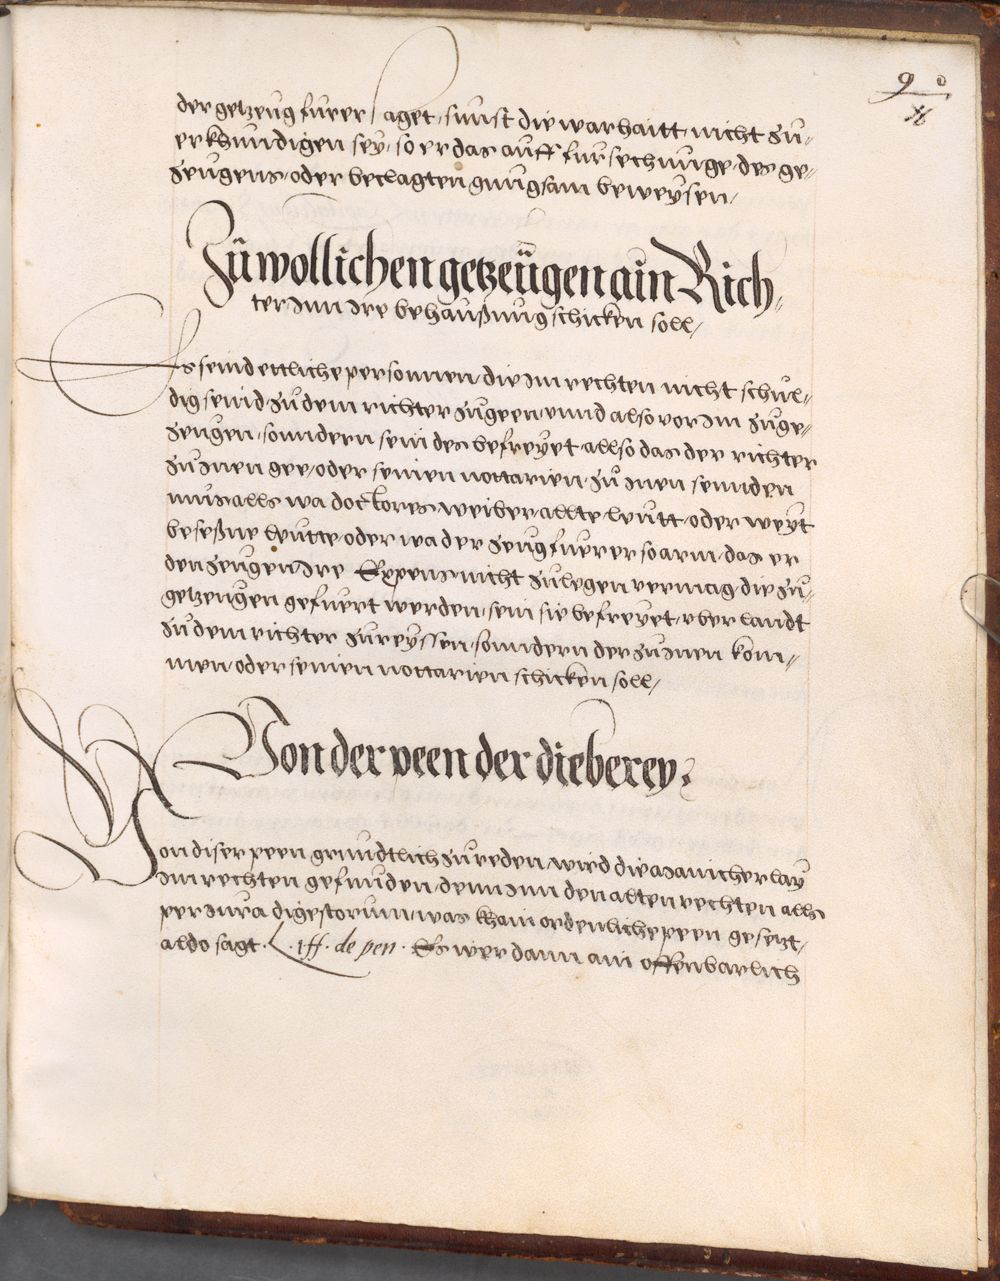 9
der getzeug fuerer saget, sunst die warhaitt nicht zu-
erkhundigen sey, so er das auff fursechunge des ge-
zeugens oder beclagten gnugsam beweysen,
Zu wollichen getzeugen ain Rich-
ter Inn Ire behaußung schicken soll,
Es seind ettliche personnen, die Im rechten nicht schul-
dig seind zu dem richter zugeen, unnd also vor Im zuge-
zeugen, sonndern sein des befreyet, allso das der richter
zu Inen gee, oder seinen nottarien, zu Inen sennden
mus, alls wa doctores, weiber, allte leutt, oder weyt
beseßne leutte, oder wa der zeugfuerer so arm, das er
den zeugen Ire Expens nicht zulegen vermag, die zu-
getzeugen gefuert werden, sein sie befreyet, vber landt
zu dem richter zureyssen, sonndern der zu Inen kom-
men, oder seinen nottarien schicken soll,
Von der peen der dieberey.
Von diser peen grundtlich zureden, wird die manicherlay
Im rechten gefunden, denn Inn den alten rechten, alls
per Jura digestorum, was khain ordenliche peen gesetzt,
aldo sagt. L. 1 ff. de pen. Es wer dann ain offenbarlich